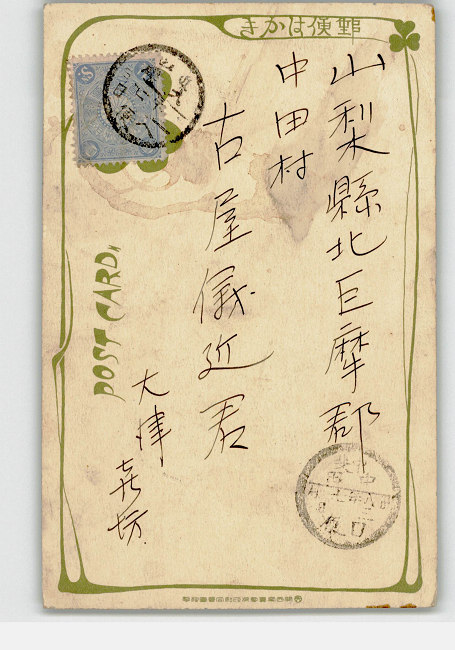 郵便はかき
山梨縣北巨摩郡
中田村
古屋儀近君
大津
㐂坊
POST CARD